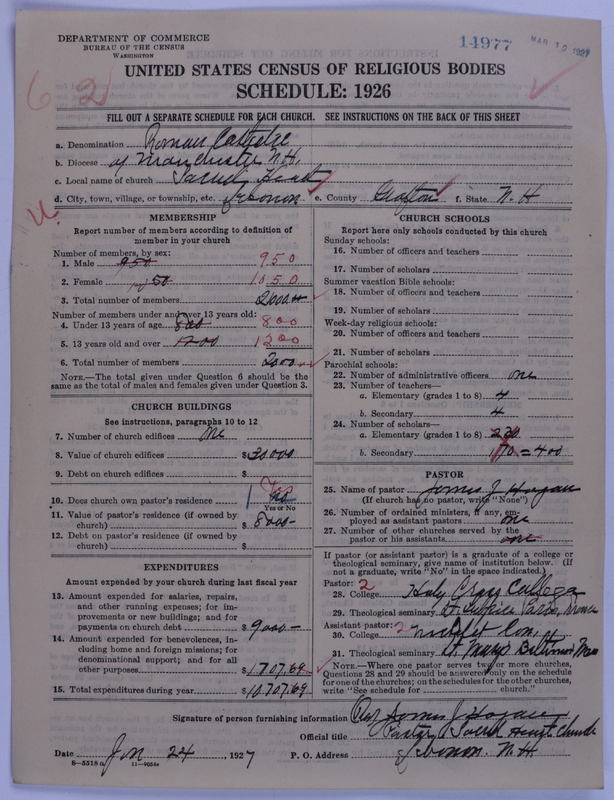 DEPARTMENT OF COMMERCE
BUREAU OF THE CENSUS
WASHINGTON
14977
MAR 12 1927
UNITED STATES CENSUS OF RELIGIOUS BODIES
SCHEDULE: 1926
62
FILL OUT A SEPARATE SCHEDULE FOR EACH CHURCH. SEE INSTRUCTIONS ON THE BACK OF THIS SHEET
a. Denomination Roman Catholic
b. Diocese of Manchester N.H.
c. Local name of church Sacred Heart
d. City, town, village, or township, etc. Lebanon e. County Grafton f. State N. H
MEMBERSHIP
Report number of members according to definition of member in your church
Number of members, by sex:
1. Male 950 950
2. Female 1050
3. Total number of members 2000
Number of members under and over 13 years old:
4. Under 13 years of age 800 800
5. 13 years old and over 1200 1200
6. Total number of members 2000
NOTE.—The total given under Question 6 should be the
same as the total of males and females given under Question 3.
CHURCH BUILDINGS
See instructions, paragraphs 10 to 12
7. Number of church edifices One
8. Value of church edifices $30000
9. Debt on church edifices $
10. Does church own pastor's residence Yes
Yes or No
11. Value of pastor's residence (if owned by
church) $ 8000-
12. Debt on pastor's residence (if owned by
church) $
EXPENDITURES
Amount expended by your church during last fiscal year
13. Amount expended for salaries, repairs,
and other running expenses; for im-
provements or new buildings; and for
payments on church debt $ 9000-
14. Amount expended for benevolences, in-
cluding home and foreign missions; for
denominational support; and for all
other purposes $1707.69
15. Total expenditures during year $10707.69
CHURCH SCHOOLS
Report here only schools conducted by this church
Sunday schools:
16. Number of officers and teachers
17. Number of scholars
Summer vacation Bible schools:
18. Number of officers and teachers
19. Number of scholars
Week-day religious schools:
20. Number of officers and teachers
21. Number of scholars
Parochial schools:
22. Number of administrative officers one
23. Number of teachers—
a. Elementary (grades 1 to 8) 4
b. Secondary 4
24. Number of scholars—
a. Elementary (grades 1 to 8) 230
b. Secondary 170 = 400
PASTOR
25. Name of pastor James J Hogan
(If church has no pastor, write "None")
26. Number of ordained ministers, if any, em-
ployed as assistant pastors one
27. Number of other churches served by the
pastor or his assistants one
If pastor (or assistant pastor) is a graduate of a college or
theological seminary, give name of institution below. (If
not a graduate, write "No" in the space indicated.)
Pastor: 2
28. College Holy Cross College
29. Theological seminary
Assistant pastor: 2
30. College
31. Theological seminary St. Marys Baltimore
NOTE.—Where one pastor serves two or more churches,
Questions 28 and 29 should be answered only on the schedule
for one of the churches; on the schedules for the other churches,
write "See schedule for church."
Signature of person furnishing information Rev James J Hogan
Official title Pastor Sacred Heart Church
Date Jan 24, 1927 P. O. Address Lebanon N. H
8—5518a 11—9054a